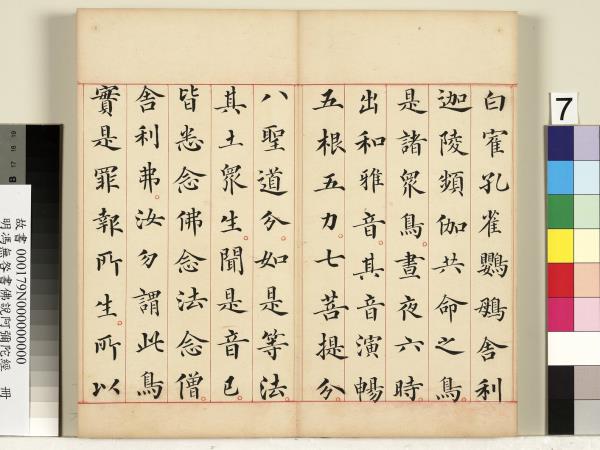 白寉孔雀鸚鵡舍利
迦陵頻伽共命之鳥
是諸眾鳥晝夜六時
出和雅音其音演暢
五根五力七菩提分
八聖道分如是等法
其土眾生聞是音已
皆悉念佛念法念僧
舍利弗汝勿謂此鳥
實是罪報所生所以
7
故書000179N000000000
明馮無咎書佛說阿彌陀經 冊